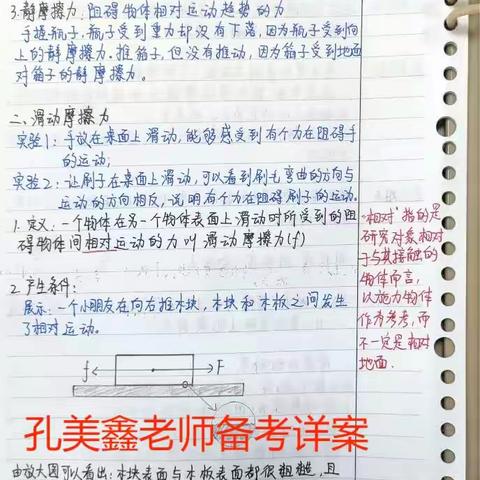 3.静摩擦力:阻碍物体相对运动趋势的力
手提瓶子,瓶子受到重力却没有下落,因为瓶子受到向
上的静摩擦力。推箱子,但没有推动,因为箱子受到地面
对箱子的静摩擦力。
二、滑动摩擦力
实验1:手放在桌面上滑动,能够感受到有个力在阻碍手
的运动;
实验2:让刷子在桌面上滑动,可以看到刷毛弯曲的方向与
运动的方向相反,说明有个力在阻碍刷子的运动。
1.定义:一个物体在另一个物体表面上滑动时所受到的阻
碍物体间相对运动的力叫滑动摩擦力(f)
"相对"指的是
研究对象相对
于与其接触的
物体而言,
以施力物体
作为参考,而
不一定是相对
地面.
2.产生条件:
展示:一个小朋友在向右推木块,木块和木板之间发生
了相对运动。
f
F
孔美鑫老师备考详案
由放大图可以看出:木块表面与木板表面都很粗糙,且